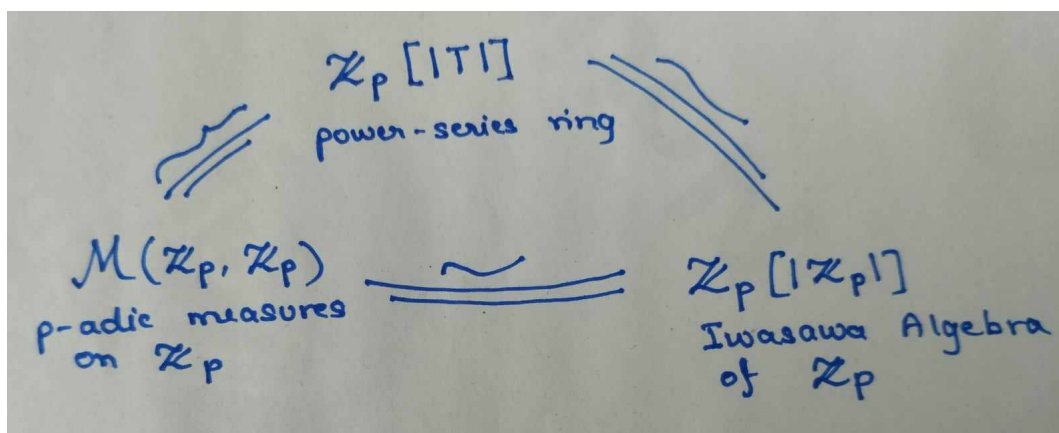 ℤp [|T|]
power-series ring
M(ℤp, ℤp)
p-adic measures
on ℤp
≅
ℤp [|ℤp|]
Iwasawa Algebra
of ℤp